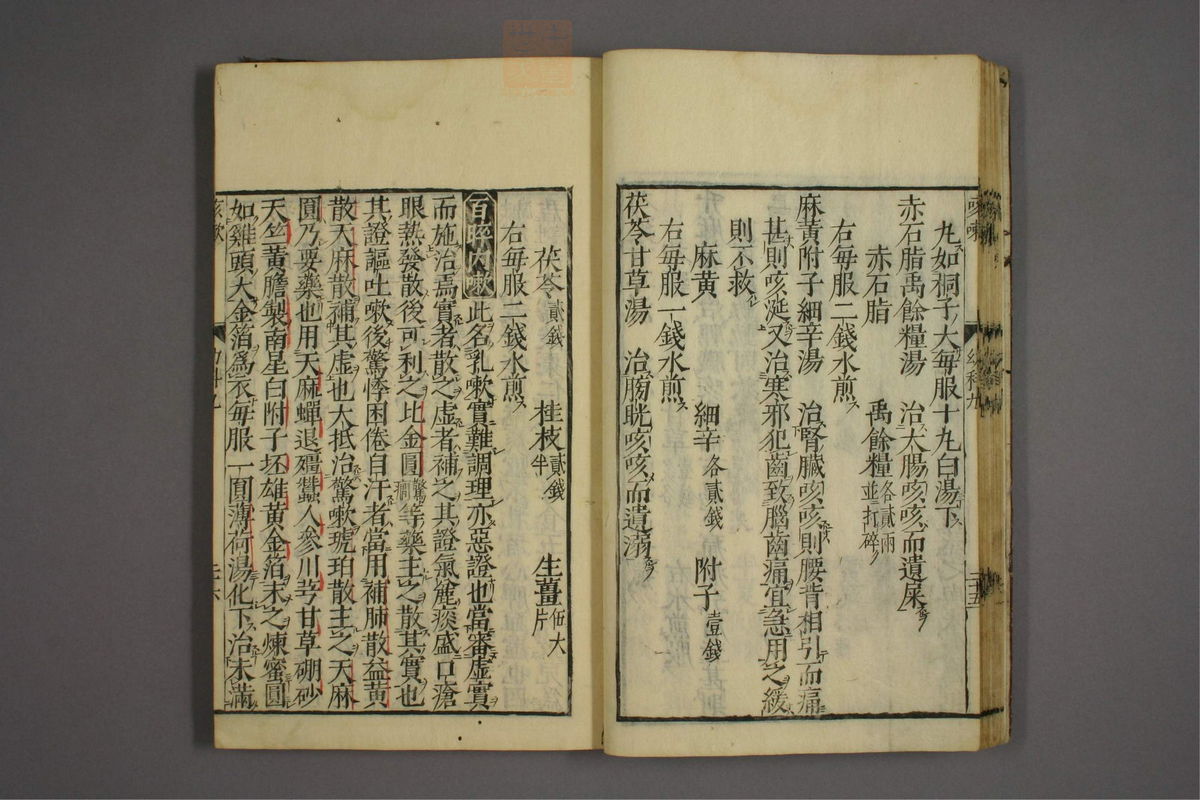 丸如桐子大每服十丸白湯下
赤石脂禹餘糧湯 治大腸咳咳而遺屎
赤石脂 禹餘糧各貳兩並打碎
右每服二錢水煎
麻黃附子細辛湯 治腎臟咳咳則腰背相引而痛
甚則咳涎又治寒邪犯齒致腦齒痛宜急用之緩
則不救
麻黃 細辛各貳錢 附子壹錢
右每服一錢水煎
茯苓甘草湯 治膀胱咳咳而遺溺
茯苓貳錢 桂枝貳錢半 生薑伍大片
右每服二錢水煎
百晬內嗽 此名乳嗽實難調理亦惡證也當審虛實
而施治焉實者散之虛者補之其證氣麄痰盛口瘡
眼熱發散後可利之比金圓驚癇等藥主之散其實也
其證嘔吐嗽後驚悸困倦自汗者當用補肺散益黃
散天麻散補其虛也大抵治驚嗽琥珀散主之天麻
圓乃要藥也用天麻蟬退殭蠶人參川芎甘草硼砂
天竺黃膽製南星白附子坯雄黃金箔末之煉蜜圓
如雞頭大金箔爲衣每服一圓薄荷湯化下治未滿
咳嗽 幼科九 二十六